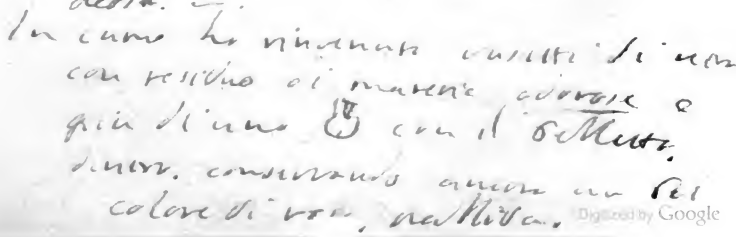 In cuma ha rinvenuti vasetti di
con residuo di materie odorose e
più di uno con il belletto
dentro, conservando ancora un bel
colore di rosa,
Digitized by Google